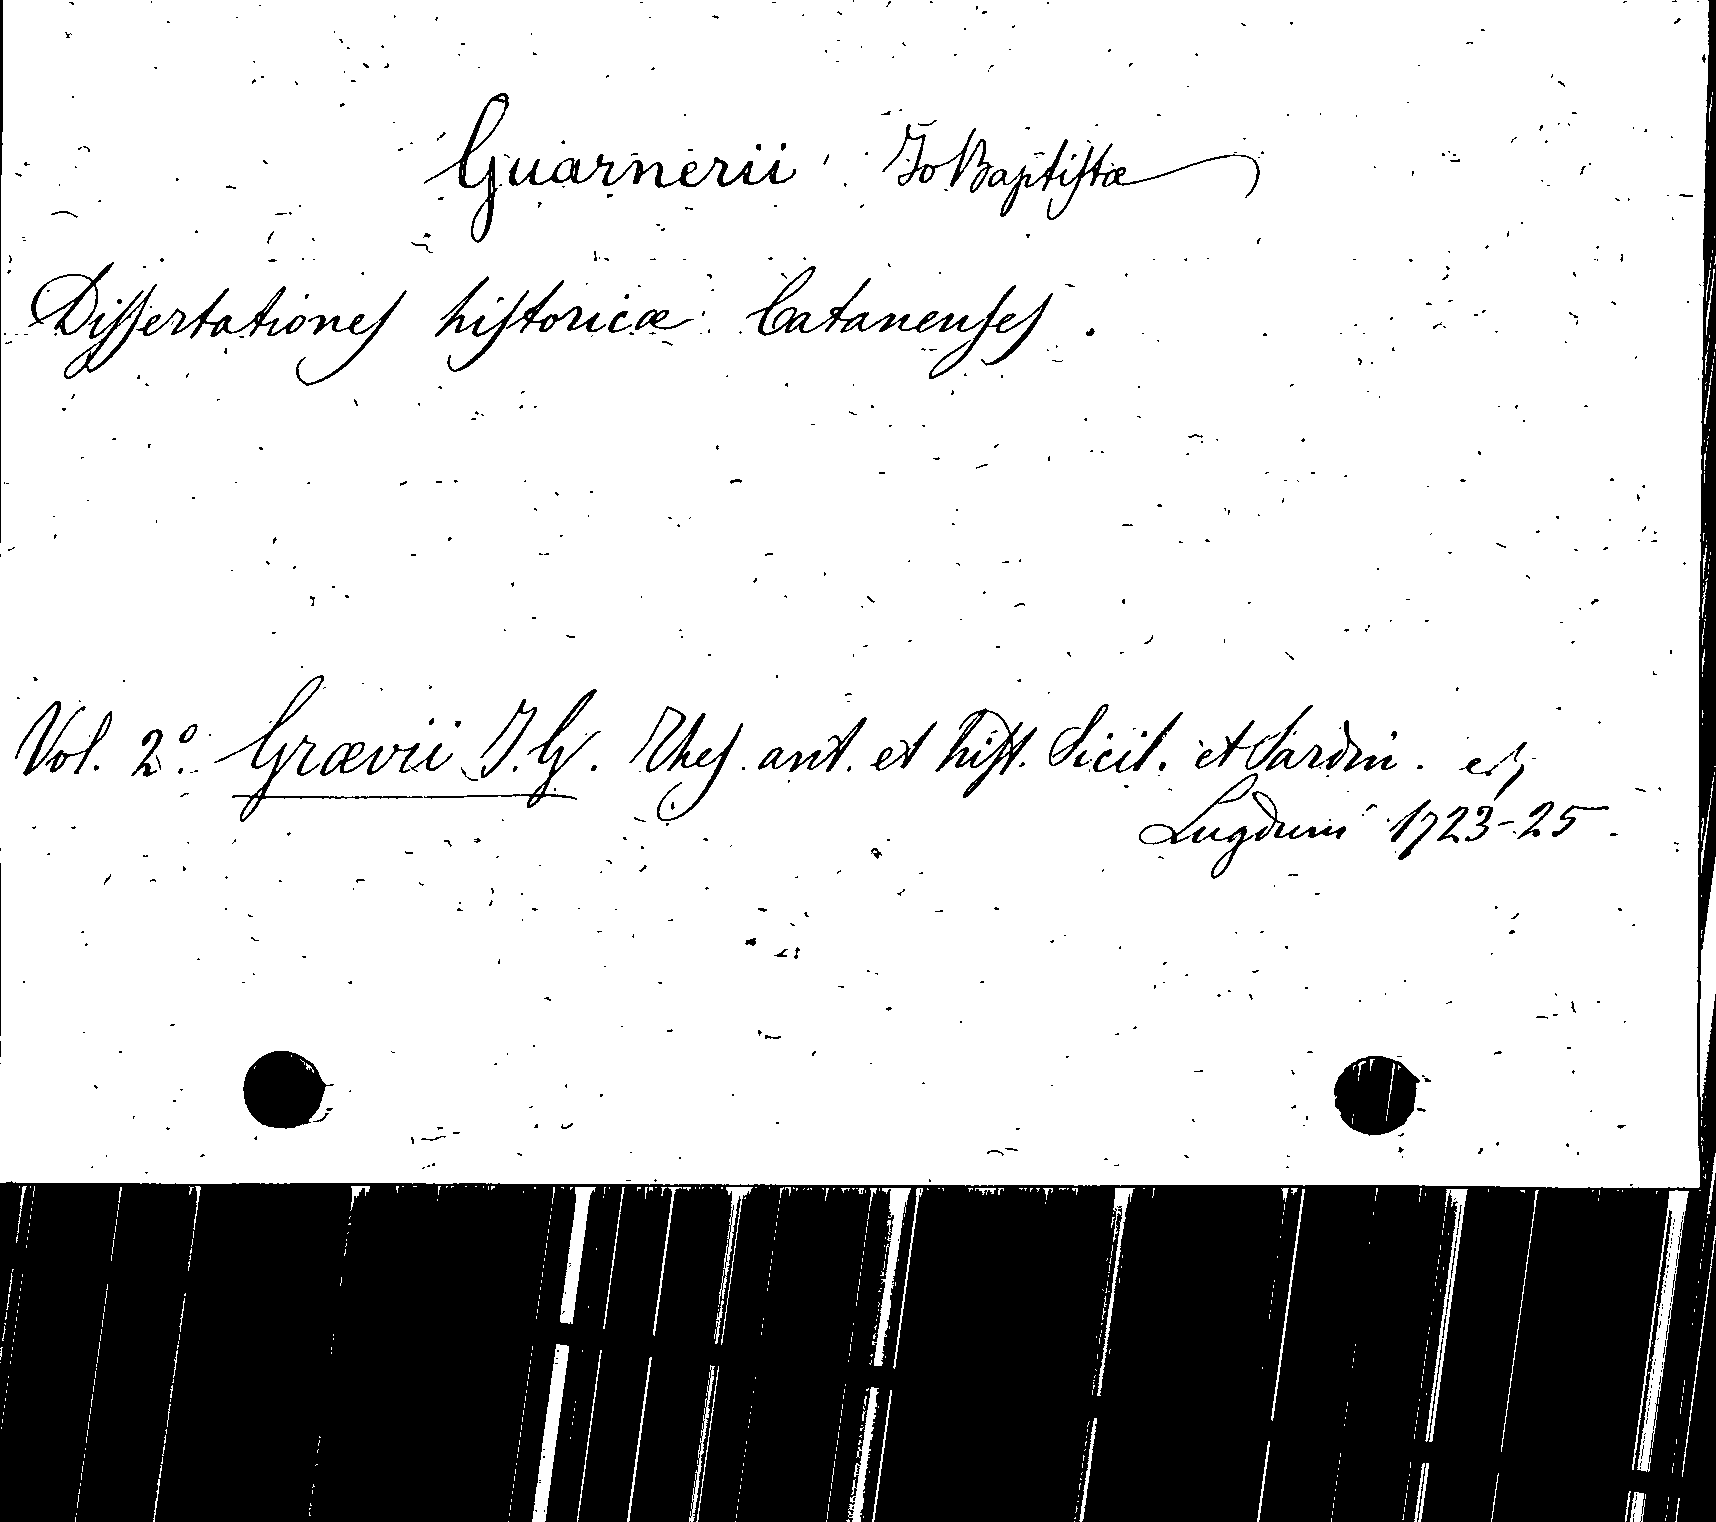 Guarnerii Jo Baptistæ
Dissertationes historicæ Catanenses.
Vol. 2º. Grævii J. G. Thes. ant. et hist. Sicil. et Sardin.
Lugduni 1723-25.